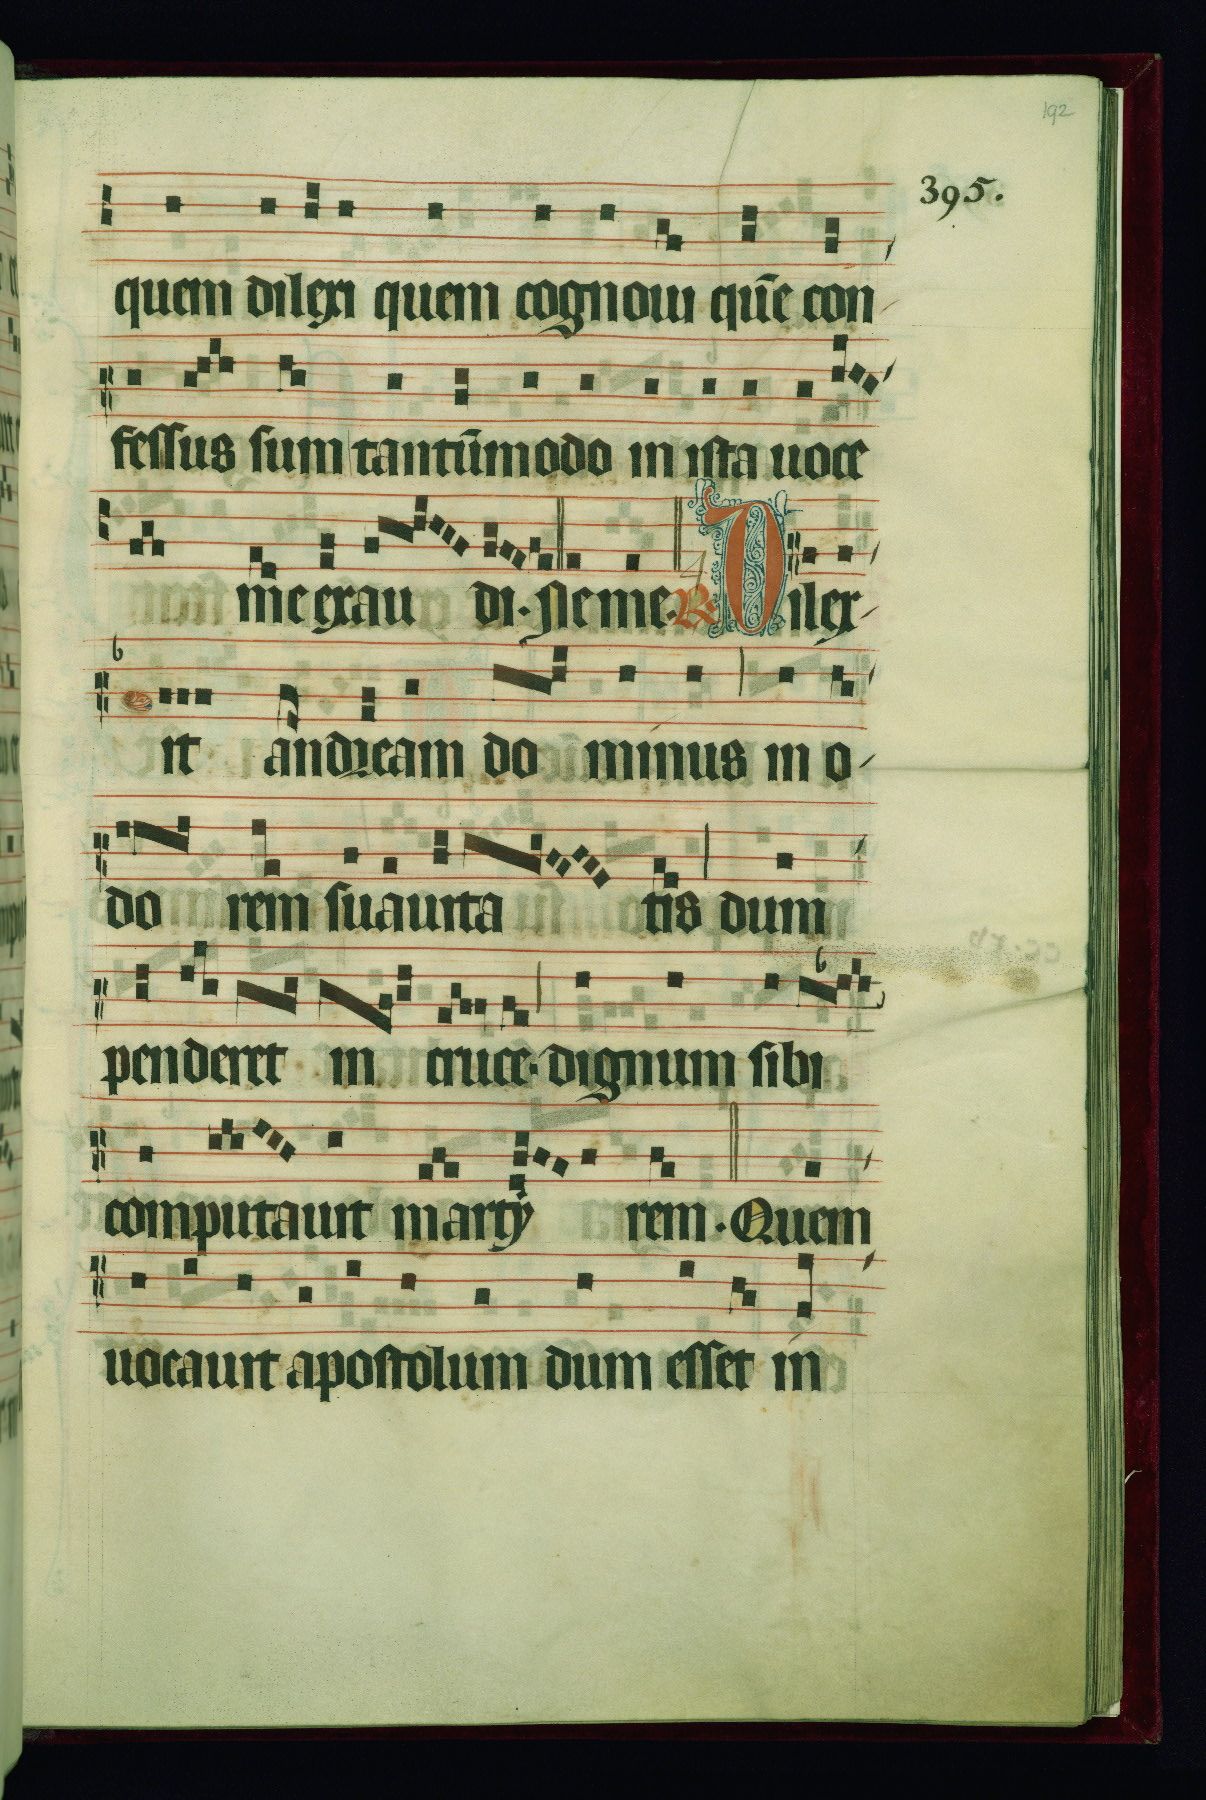 192
395.
quem dilexi quem cognoui quē con
fessus sum tantūmodo in ista uoce
me exau di. Ne me. R Dilex
it andream do minus in o
do rem suauita tis dum
penderet in cruce. dignum sibi
computauit marty rem. Quem
uocauit apostolum dum esset in